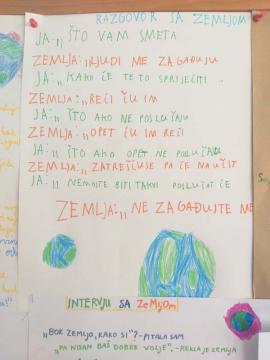 RAZGOVOR SA ZEMLJOM
JA:,, ŠTO VAM SMETA
ZEMLJA:,, LJUDI ME ZAGAĐUJU
JA:,, KAKO ĆETE TO SPRIJEČITI
ZEMLJA:,, REĆI ĆU IM
JA:,, ŠTO AKO NE POSLUŠAJU
ZEMLJA:,, OPET ĆU IM REĆI
JA:,, ŠTO AKO OPET NE POSLUŠAJU
ZEMLJA:,, ZATREŠĆU SE PA ĆE NAUČIT
JA:,, NEMOJTE BITI TAKVI POSLUŠAT ĆE
ZEMLJA:,, NE ZAGAĐUJTE ME
INTERVJU SA ZEMLJOM
„BOK ZEMLJO, KAKO SI"?-PITALA SAM
„PA NISAM BAŠ DOBRE VOLJE".-REKLA JE ZEMLJA